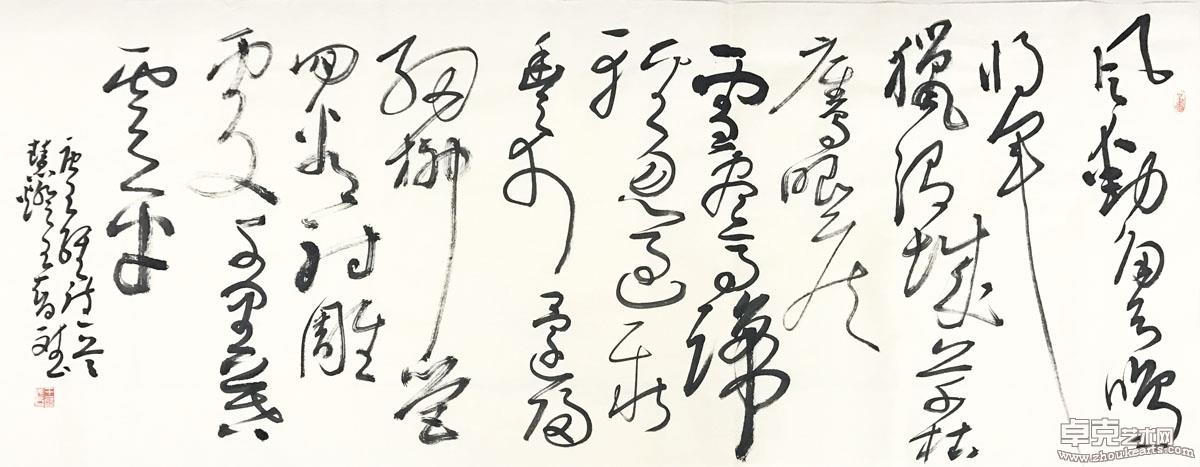 風勁角弓鳴
將軍
獵渭城草枯
鷹眼疾
雪盡馬蹄
輕忽過新
豐市還歸
細柳營
回看射雕
處千里暮
雲平
唐王維詩一首
慧燈王春
卓克艺术网
www.zhoukearts.com